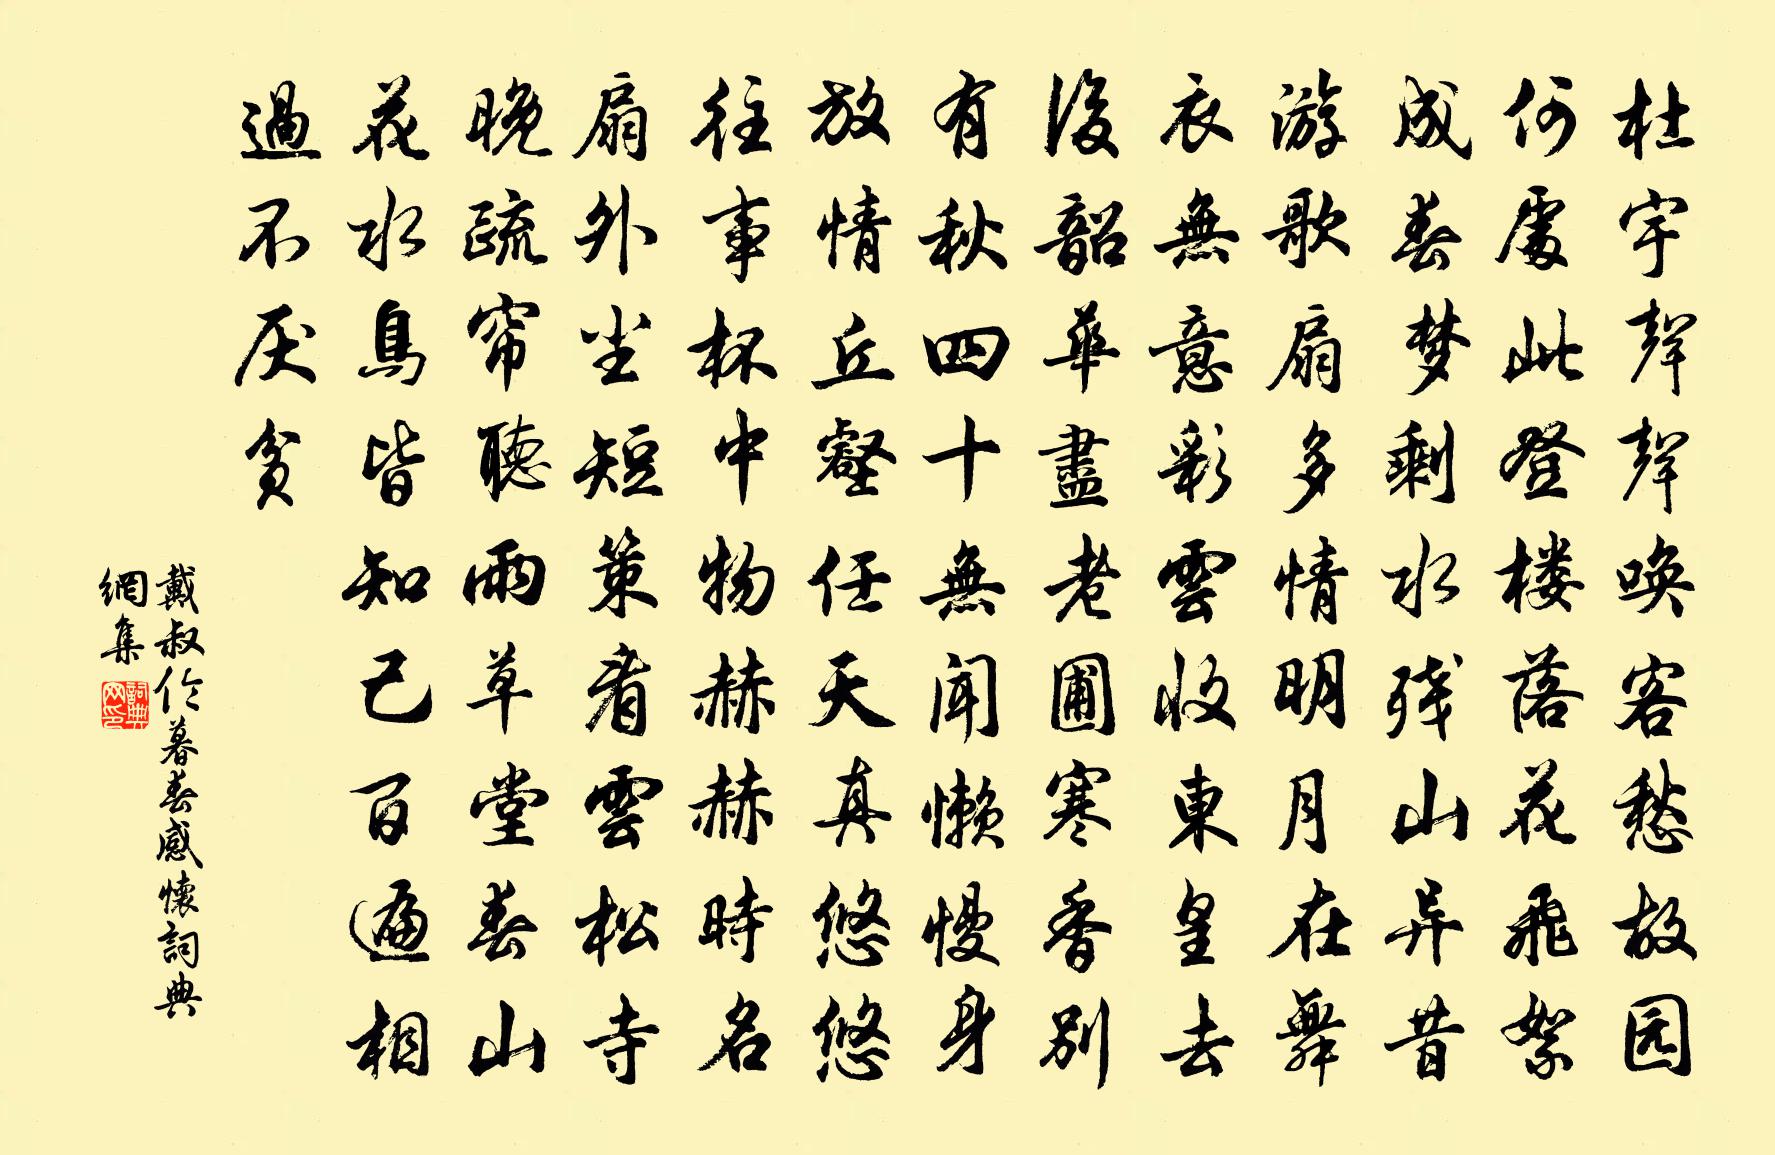 杜宇聲聲唤客愁故园
何處此登楼落花飛絮
成春梦剩水残山异昔
游歌扇多情明月在舞
衣無意彩雲收東皇去
後韶華盡老圃寒香别
有秋四十無闻懒慢身
放情丘壑任天真悠悠
往事杯中物赫赫時名
扇外尘短策看雲松寺
晚疏帘聽雨草堂春山
花水鳥皆知己百遍相
過不厌貧
戴叔伦暮春感懷詞典
網集
詞典网印